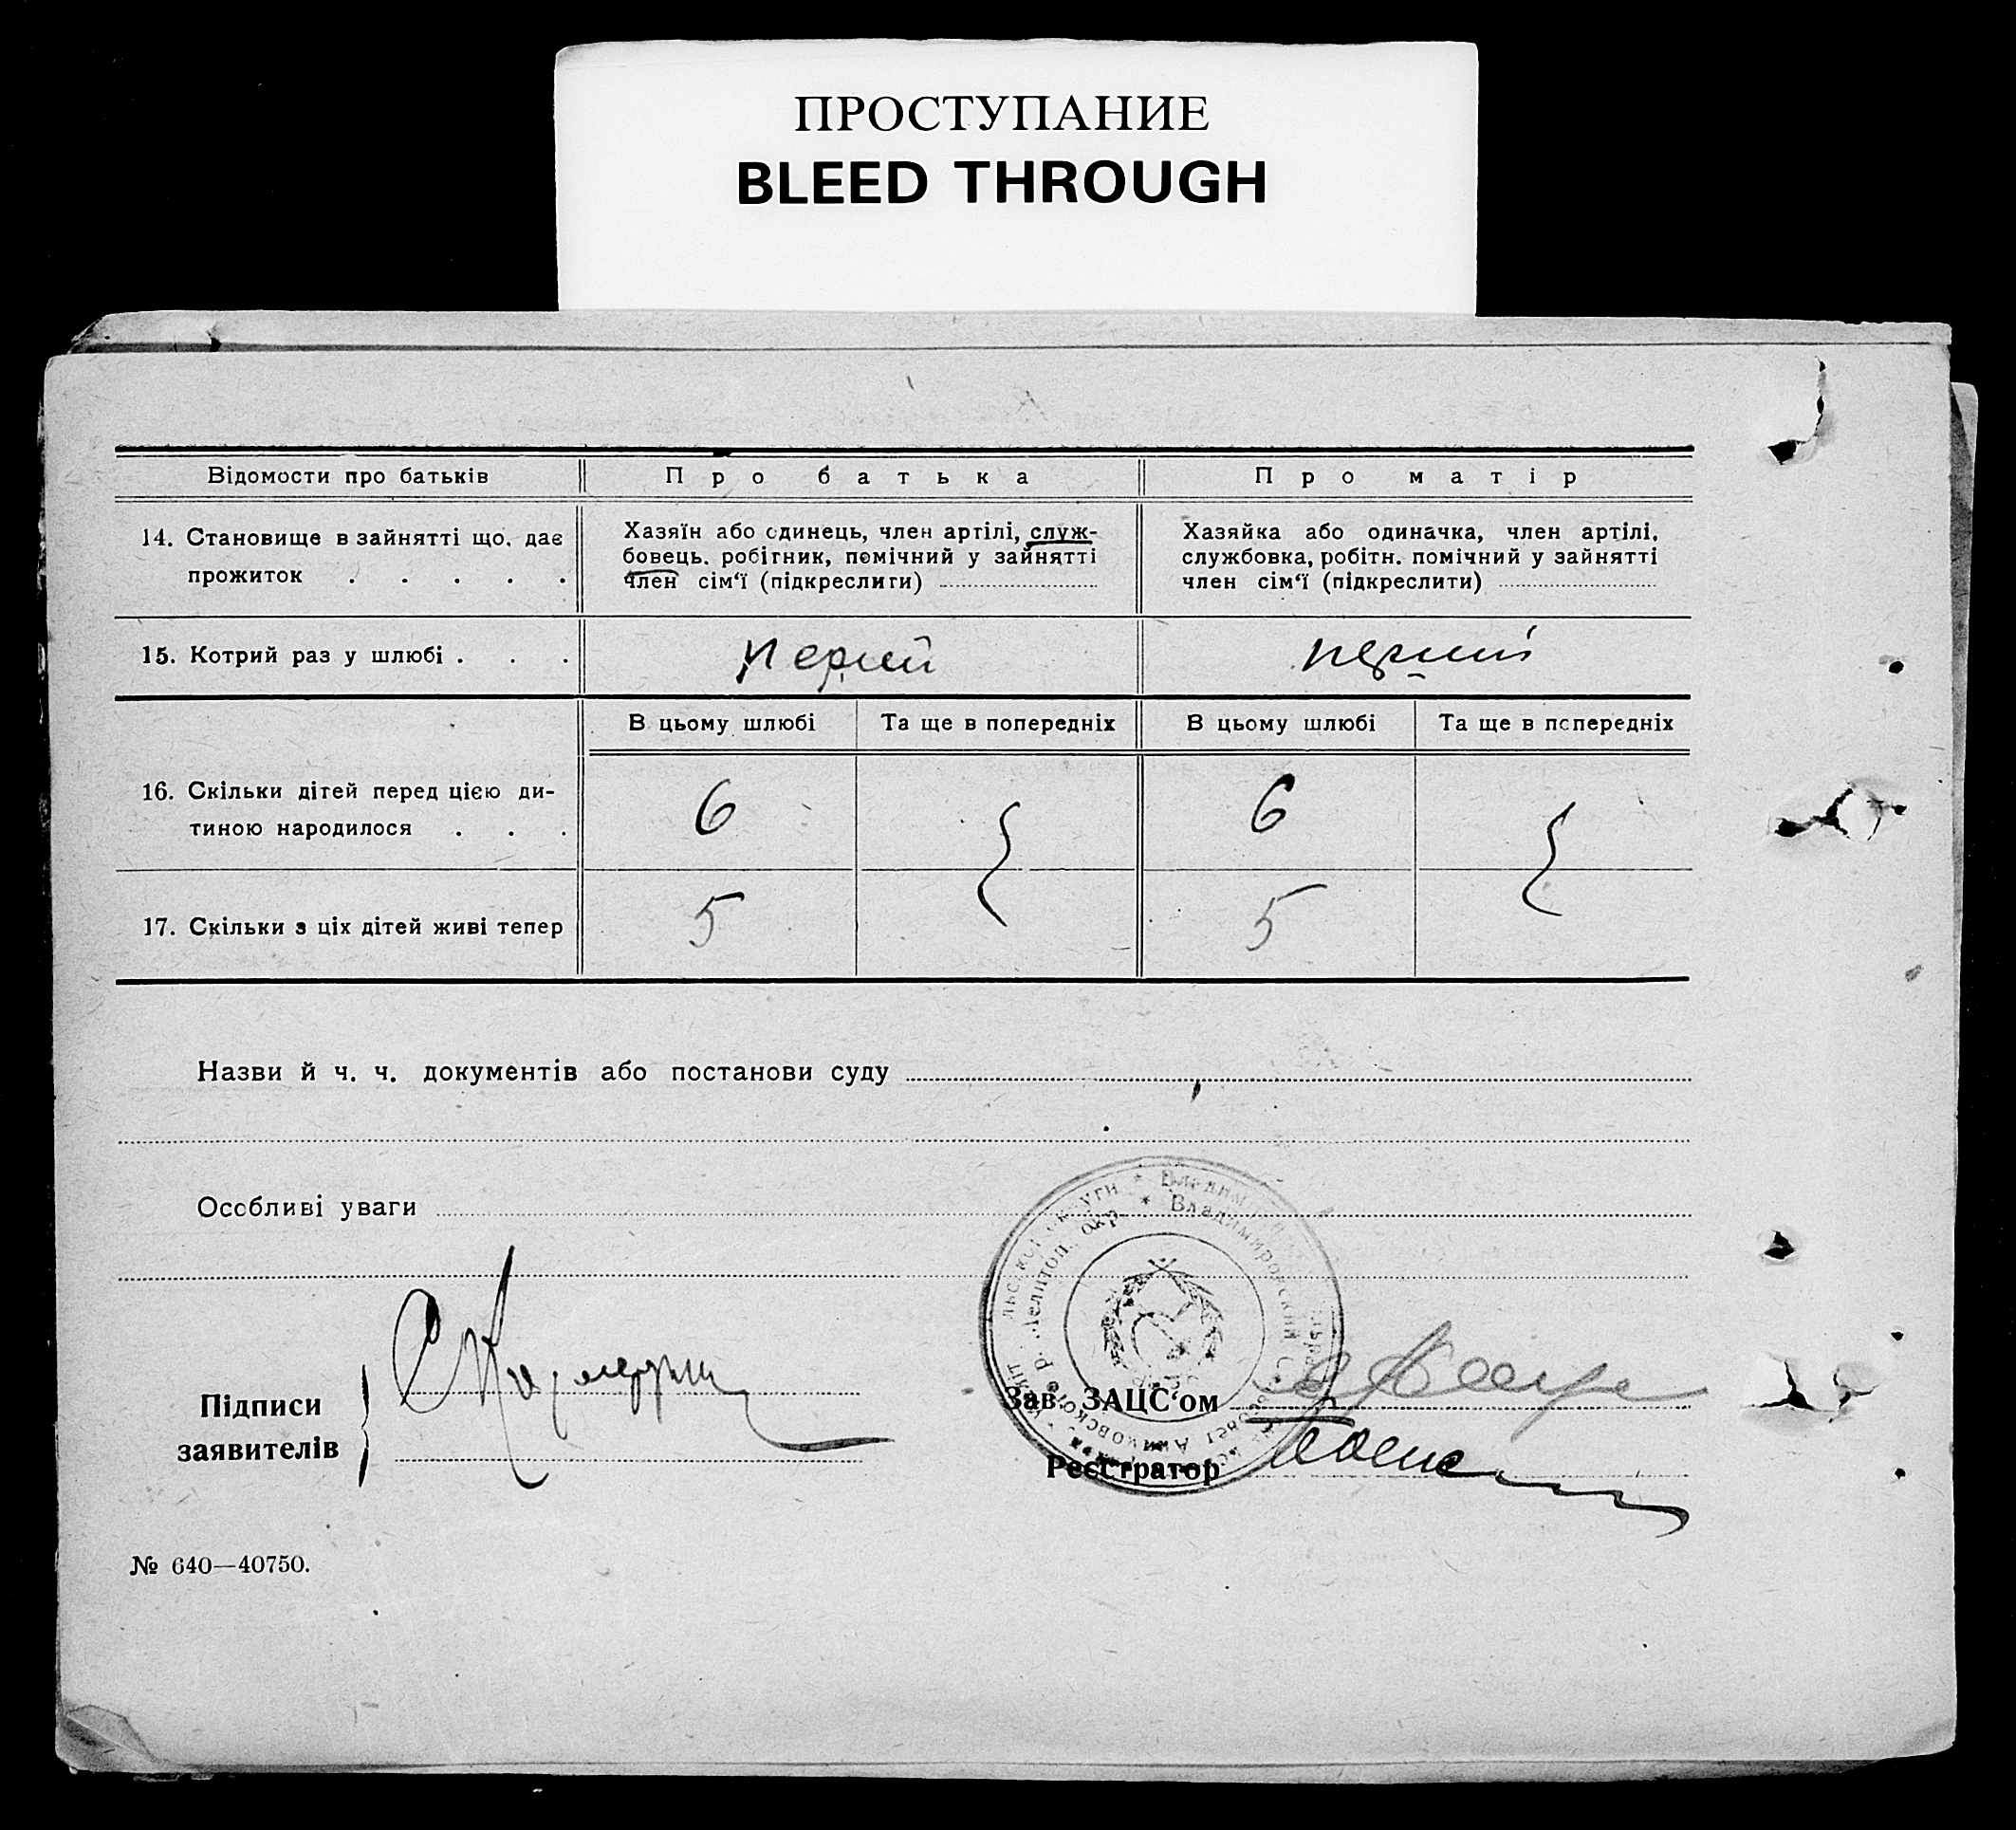 ПРОСТУПАНИЕ
BLEED THROUGH
Відомости про батьків
Про батька
Про матір
14. Становище в зайнятті що. дає
прожиток . . . . .
Хазяїн або одинець, член артілі, служ-
бовець. робітник, помічний у зайнятті
член сім‘ї (підкреслити)
Хазяйка або одиначка, член артілі.
службовка, робітн. помічний у зайнятті
член сім‘ї (підкреслити)
15. Котрий раз у шлюбі . . .
перший
перший
В цьому шлюбі
Та ще в попередніх
В цьому шлюбі
Та ще в попередніх
16. Скільки дітей перед цією ди-
тиною народилося . . .
6
6
17. Скільки з ціх дітей живі тепер
5
5
Назви й ч. ч. документів або постанови суду
Особливі уваги
Підписи
заявителів
Мелітоп. окр. * Владимировский
Зав. ЗАЦС'ом
Реєстратор
№ 640—40750.